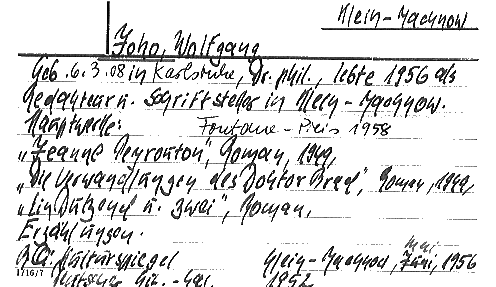 Klein-Machnow
Joho, Wolfgang
Geb. 6.3.08 in Karlsruhe, Dr. phil., lebte 1956 als
Redakteur u. Schriftsteller in Klein-Machnow.
Hauptwerke: Fontane-Preis 1958
"Jeanne Peyrouton", Roman, 1949,
"Die Verwandlungen des Doktor Brad", Roman, 1949,
"Ein Dutzend u. zwei", Roman,
Erzählungen.
Kulturspiegel Klein-Machnow, Juni, 1956
Mai
1716/7 1952